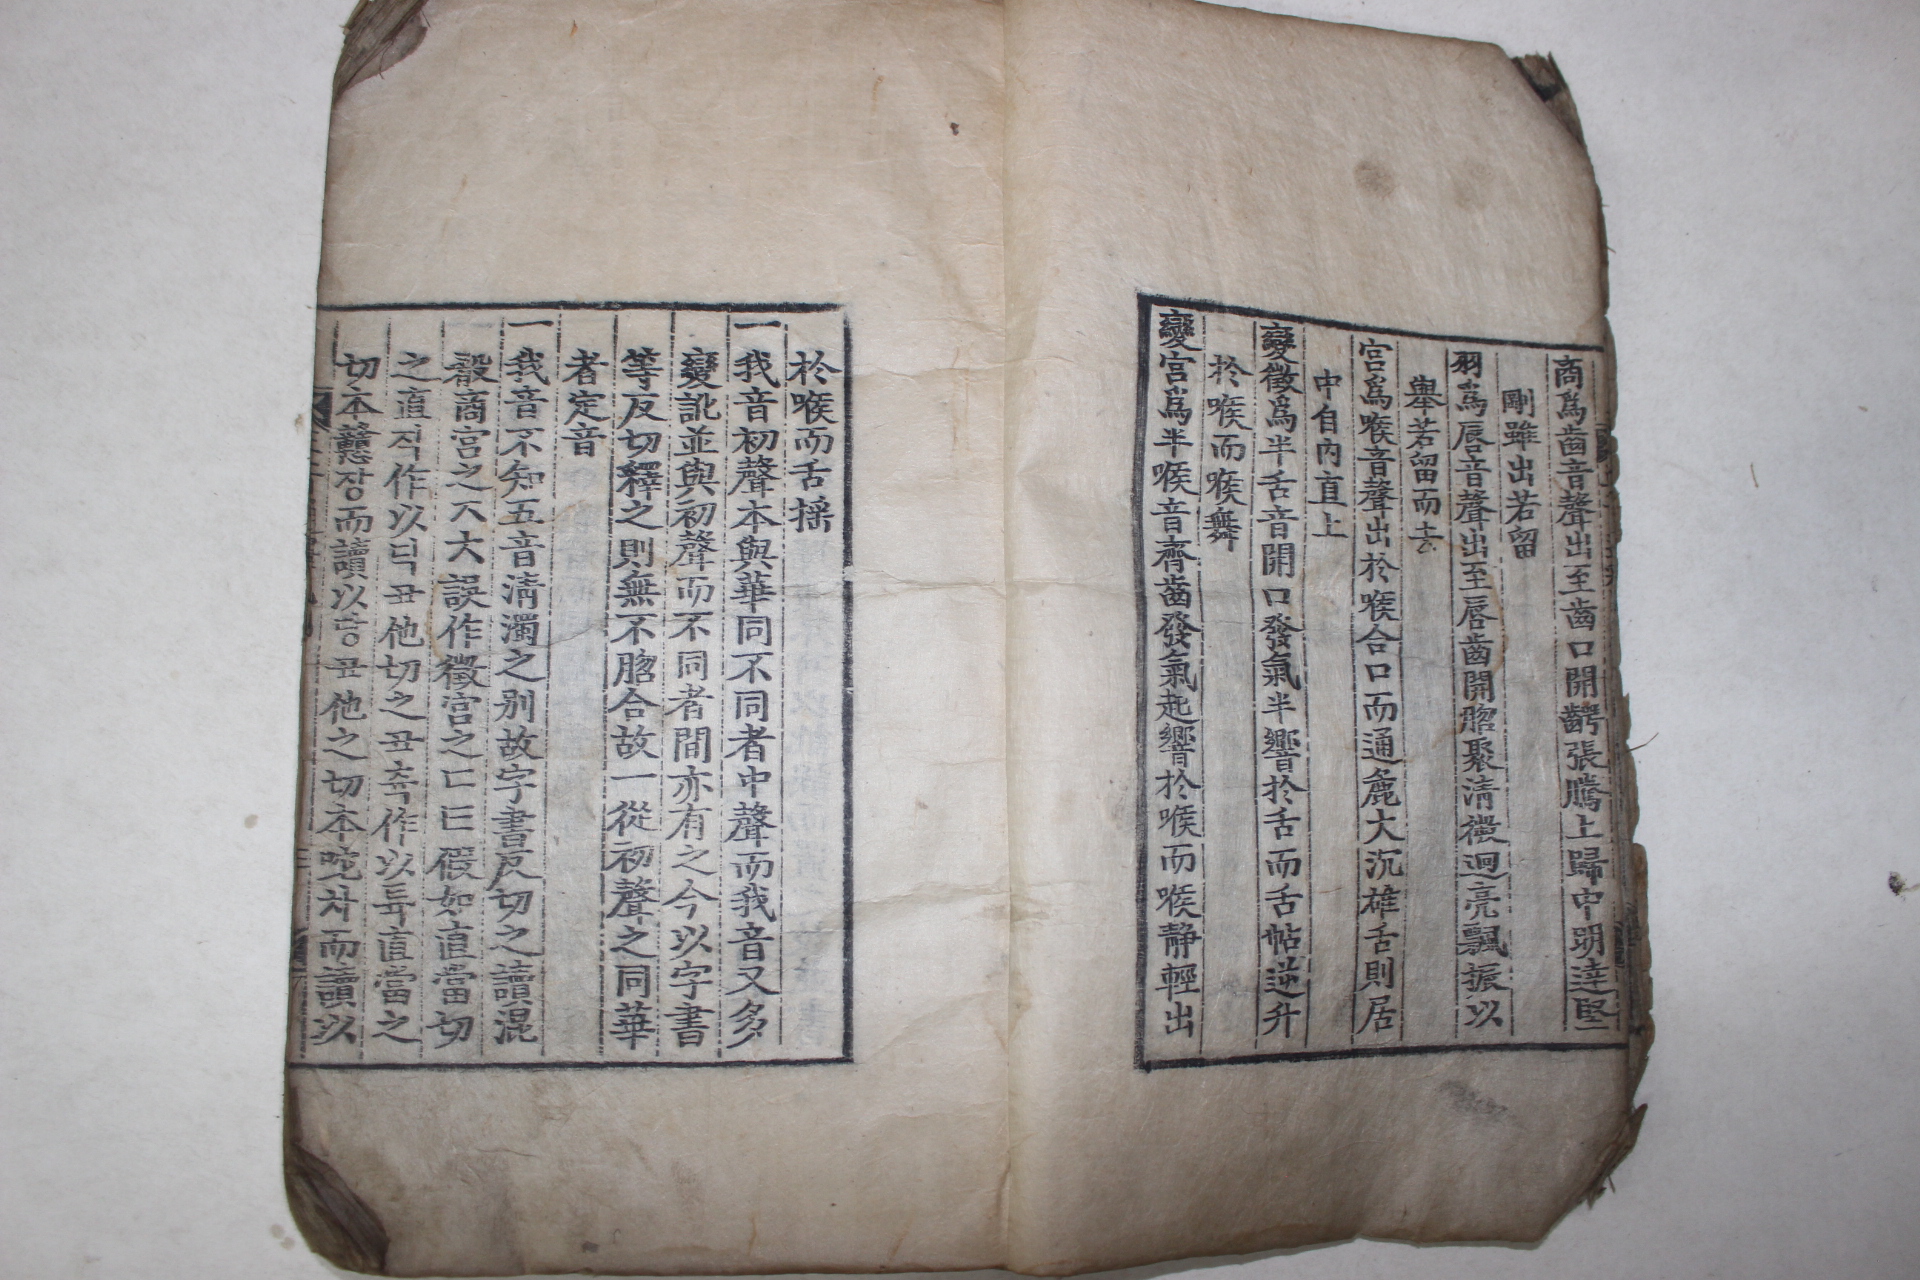 商爲齒音聲出至齒口開齶張騰上歸中明達堅
剛雖出若留
羽爲唇音聲出至唇齒開脗聚淸微迥亮飄振以
擧若留而去
宮爲喉音聲出於喉合口而通麁大沉雄舌則居
中自內直上
變徵爲半舌音開口發氣半響於舌而舌帖逆升
於喉而喉舞
變宮爲半喉音齊齒發氣起響於喉而喉靜輕出
於喉而舌搖
一我音初聲本與華同不同者中聲而我音又多
變訛並與初聲而不同者間亦有之今以字書
等反切釋之則無不脗合故一從初聲之同華
者定音
一我音不知五音淸濁之別故字書反切之讀混
殽商宮之ㅈ大誤作徵宮之ㄷㅌ假如直當切
之直직作以딕丑他切之丑츄作以튜直當之
切本戇장而讀以당丑他之切本咤차而讀以